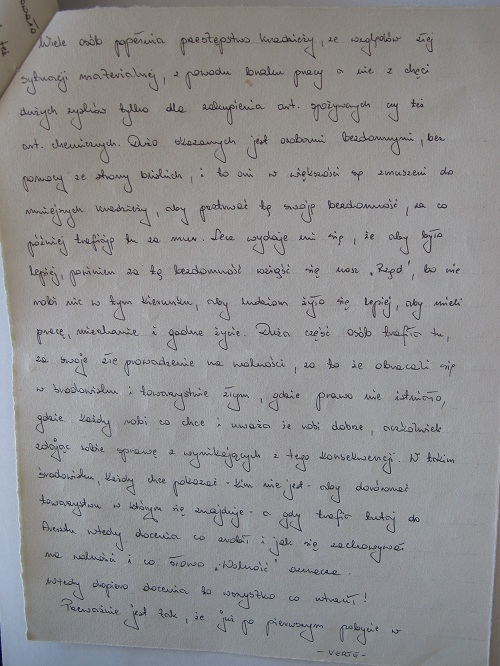 Wiele osób popełnia przestępstwo kradzieży, ze względów złej
sytuacji materialnej, z powodu braku pracy a nie z chęci
dużych zysków tylko dla zakupienia art. spożywczych czy też
art. chemicznych. Dużo skazanych jest osobami bezdomnymi, bez
pomocy ze strony bliskich, i to oni w większości są zmuszeni do
mniejszych kradzieży, aby przetrwać tą swoją bezdomność, za co
później trafiają tu za mur. Lecz wydaje mi się, że aby było
lepiej, powinien za tą bezdomność wziąść się nasz "Rząd", bo nie
robi nic w tym kierunku, aby ludziom żyło się lepiej, aby mieli
pracę, mieszkanie i godne życie. Duża część osób trafia tu,
za swoje złe prowadzenie na wolności, za to że obracali się
w środowisku i towarzystwie złym, gdzie prawo nie istniało,
gdzie każdy robi co chce i uważa że robi dobrze, aczkolwiek
zdając sobie sprawę z wynikających z tego konsekwencji. W takim
środowisku, każdy chce pokazać - kim nie jest - aby dorównać
towarzystwu w którym się znajduje - a gdy trafia tutaj do
Aresztu wtedy docenia co zrobił i jak się zachowywał
na wolności i co słowo "Wolność" oznacza.
Wtedy dopiero docenia to wszystko co utracił!
Przeważnie jest tak, że już po pierwszym pobycie w
- VERTE -